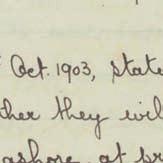 Oct. 1903, state
ther they wil
ashore at